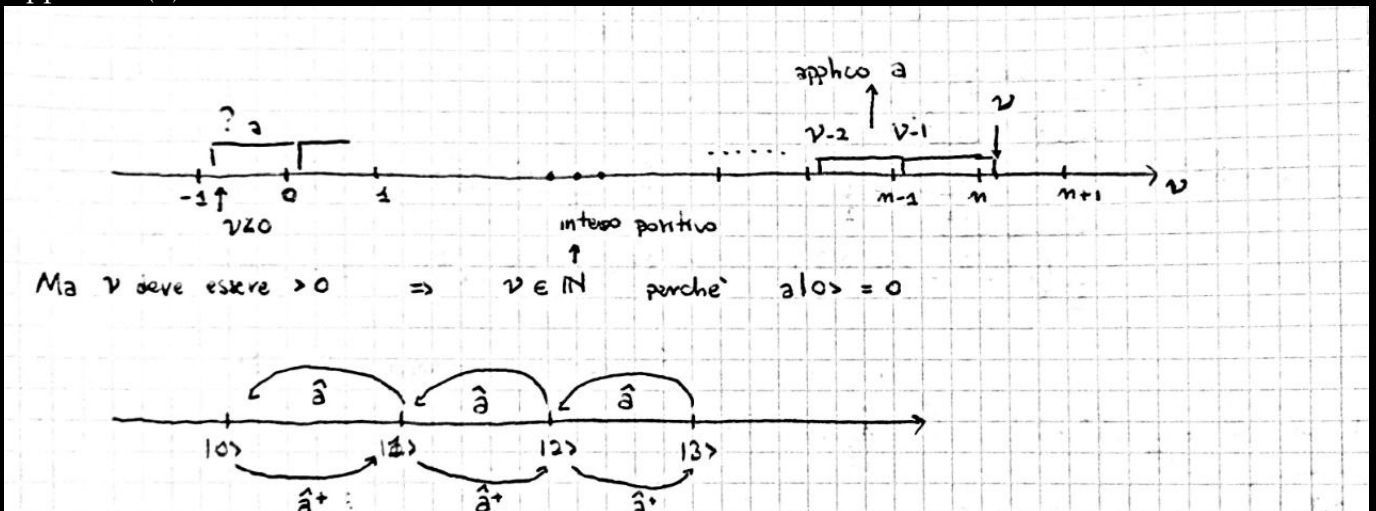 applico a
? a
ν-2 ν-1 ν
-1 0 1 n-1 n n+1 ν
ν<0
intero positivo
Ma ν deve essere >0 => ν ∈ ℕ perchè a|0> = 0
â â â
|0> |1> |2> |3>
â+ â+ â+